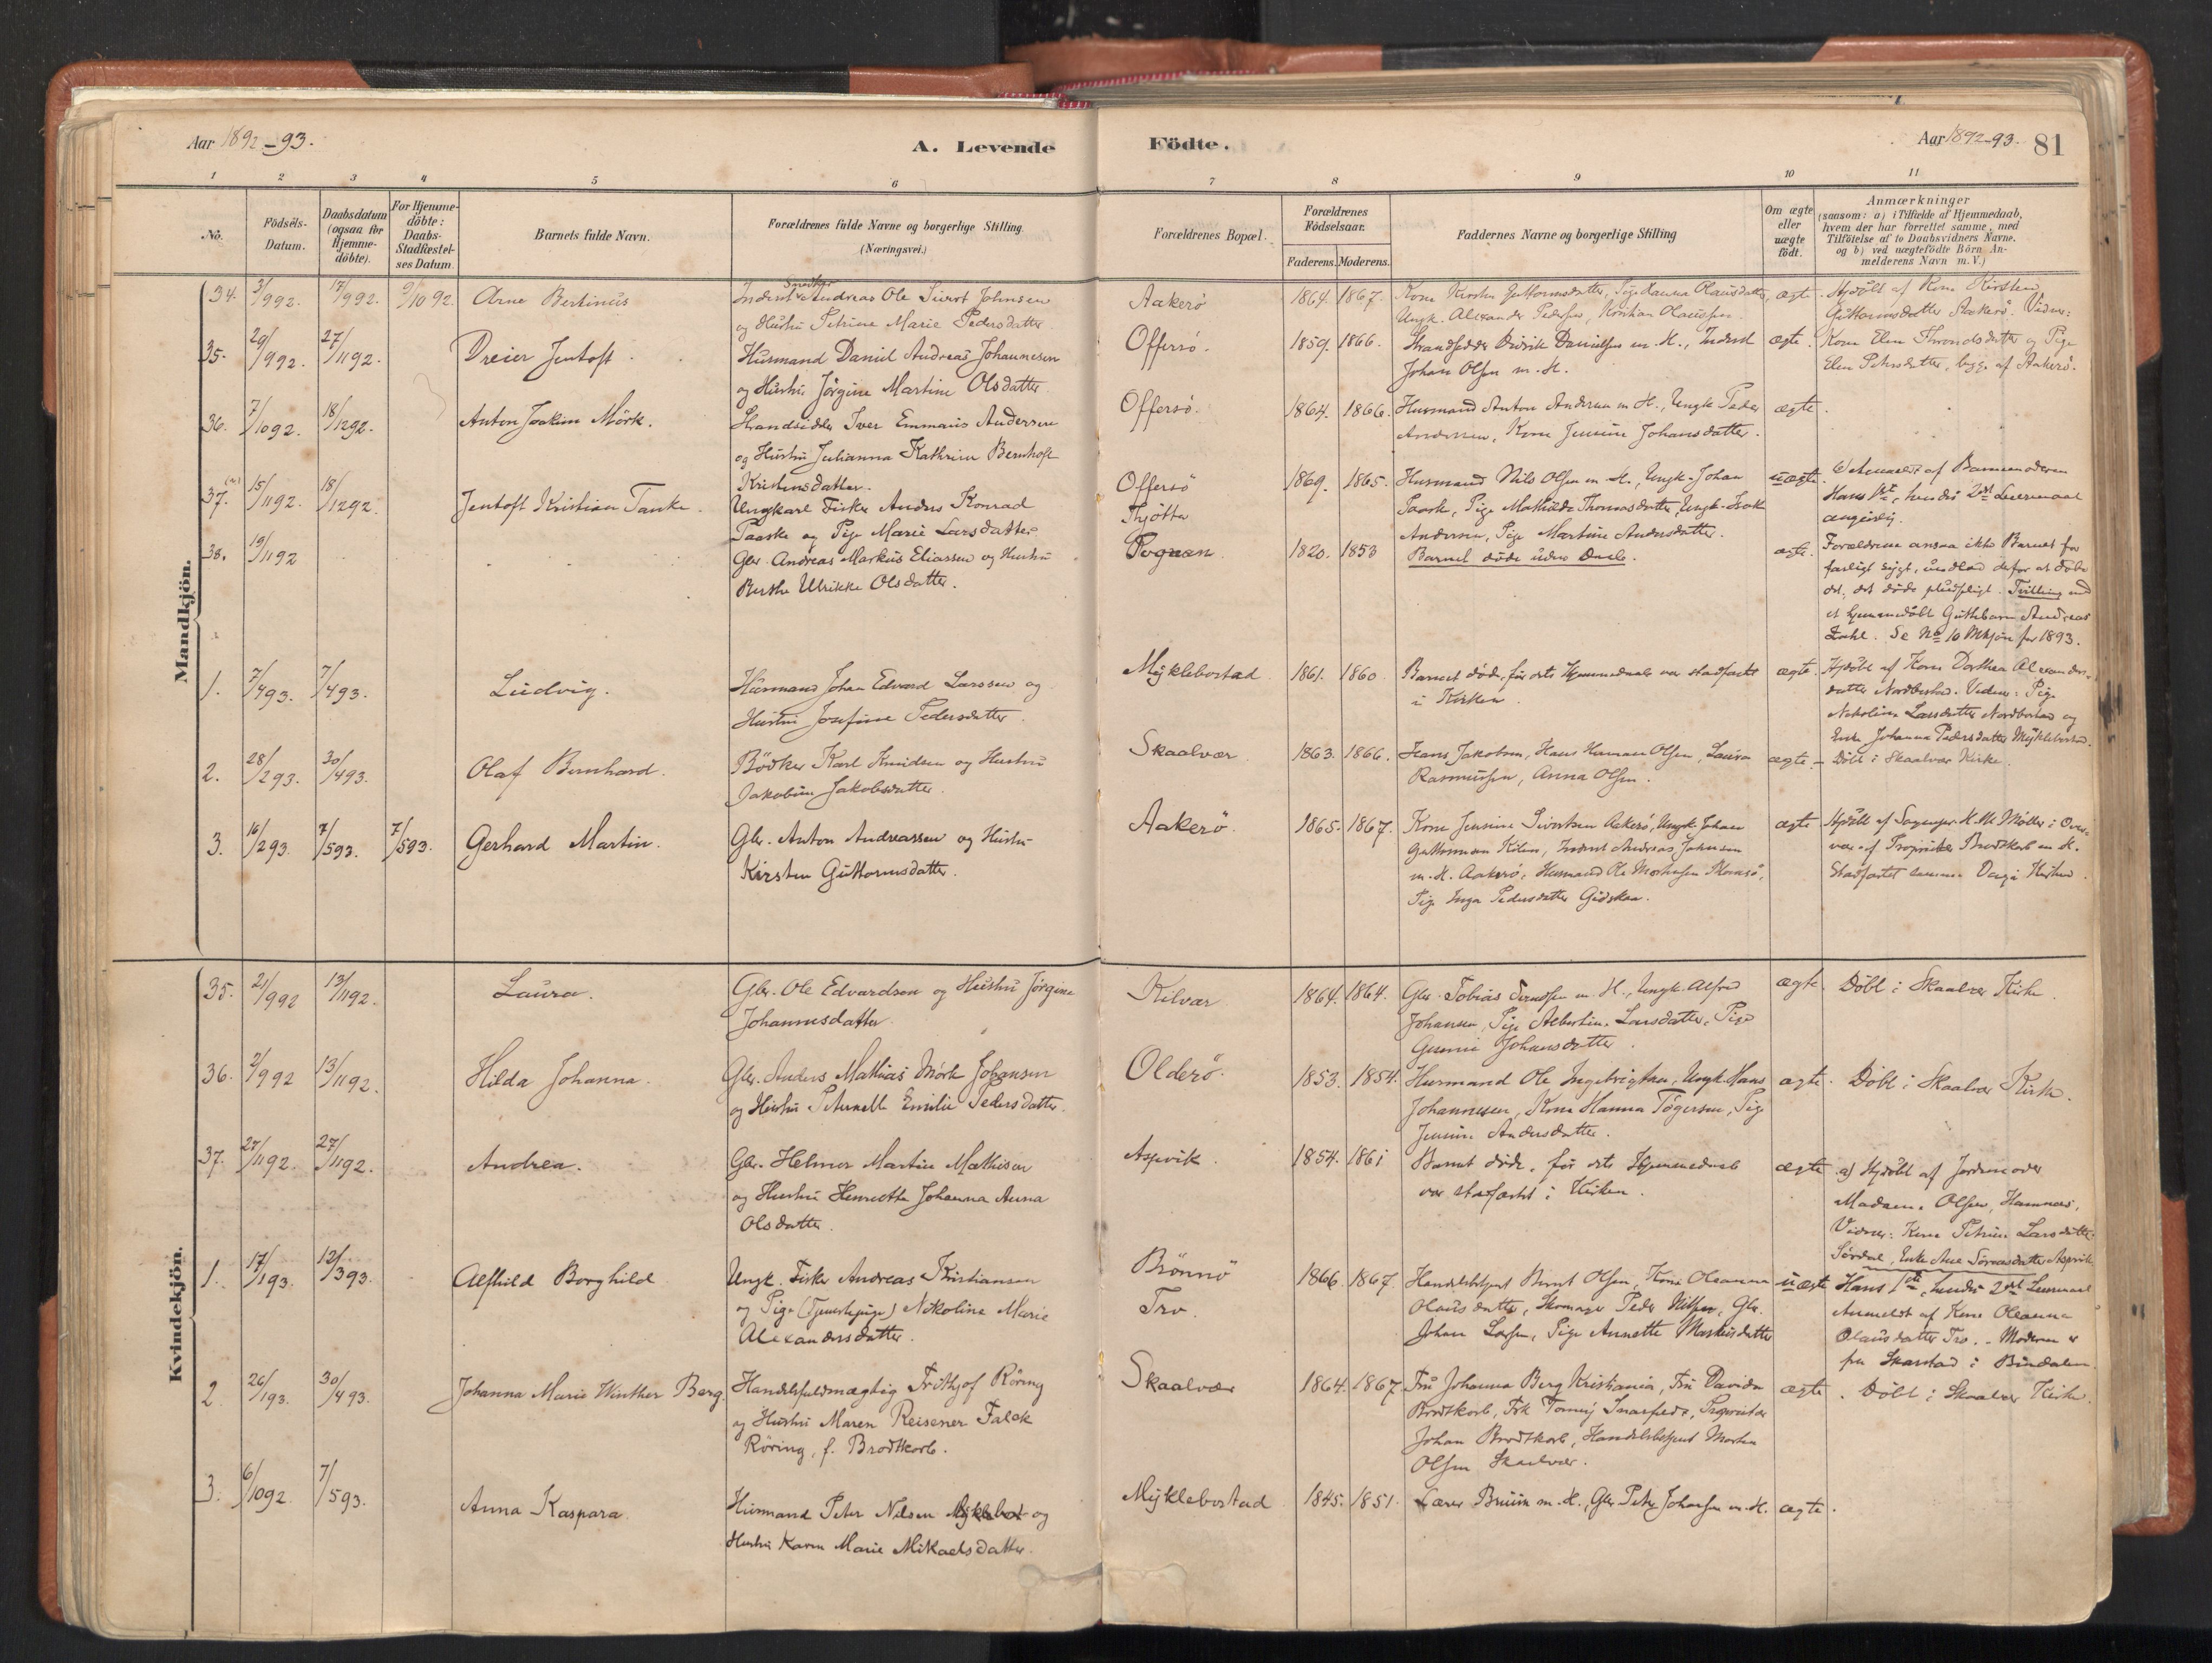 Aar 1892-93.
A. Levende
Födte.
Aar 1892-93.
81
1 2 3 4 5 6 7 8 9 10 11
No.
Födsels-
Datum.
Daabsdatum
(ogsaa for
Hjemme-
döbte).
For Hjemme-
döbte:
Daabs-
Stadfæstel-
ses Datum.
Barnets fulde Navn.
Forældrenes fulde Navne og borgerlige Stilling.
(Næringsvei.)
Forældrenes Bopæl.
Forældrenes
Födselsaar.
Faderens. Moderens.
Faddernes Navne og borgerlige Stilling
Om ægte
eller
uægte
födt.
Anmærkninger
(saasom: a) i Tilfælde af Hjemmedaab,
hvem der har forrettet samme, med
Tilföielse af to Daabsvidners Navne.
og b) ved uægtefödte Börn An-
melderens Navn m. V.)
Mandkjön.
34. 3/992. 17/992. 9/1092. Arne Bertinus
Inderst Snedker Andreas Ole Sivert Johnsen
og Hustru Petrine Marie Pedersdatter.
Aakerö 1864. 1867.
Kone Kirsten Guttormsdatter, Pige Hanna Olausdatter,
Ungk. Alexander Pedersen, Kristian Olaussen.
ægte.
Hjdöbt af Kone Kirsten
Guttormsdatter Aakerö. Vidner:
Kone Elen Throndsdatter og Pige
Elen Petersdatter, begge af Aakerö.
35. 29/992. 27/1192. Dreier Jentoft.
Husmand Daniel Andreas Johannesen
og Hustru Jörgine Martine Olsdatter.
Offersö. 1859. 1866.
Strandsidder Didrik Danielsen m. H., Inderst
Johan Olsen m. H.
ægte.
36. 7/1092. 18/1292. Anton Joakim Mörk.
Strandsidder Iver Emmaus Andersen
og Hustru Julianna Kathrine Bernhoft
Kristensdatter.
Offersö. 1864. 1866.
Husmand Anton Andersen m. H., Ungk. Peder
Andersen, Kone Jensine Johansdatter.
ægte.
37. 15/1192. 18/1292. Jentoft Kristian Tanke.
Ungkarl Fisker Anders Konrad
Paaske og Pige Marie Larsdatter
Offersö
Thjötta
1869. 1865.
Husmand Nils Olsen m. H., Ungk. Johan
Paaske, Pige Mathilde Thomasdatter, Ungk. Isak
Andersen, Pige Martine Andersdatter.
uægte.
af Barnemoderen
Hans 1ste, hendes 2det Leiermaal
angivelig.
38. 19/1192
Gbr. Andreas Markus Eliassen og Hustru
Berthe Ulrikke Olsdatter.
1820. 1853
Barnet döde uden Daab.
ægte.
Forældrene ansaa ikke Barnet for
farligt sygt, undlod derfor at döbe
det, det döde pludseligt. Tvilling med
et hjemmedöbt Guttebarn Andreas
Se No 10 Mkjön for 1893.
1. 7/493. 7/493. Ludvig.
Husmand Johan Edvard Larssen og
Hustru Josefine Pedersdatter.
Myklebostad 1861. 1860.
Barnet döde, för dets Hjemmedaab var stadfæstet
i Kirken.
ægte.
Hjdöbt af Kone Dorthea Alexanders-
datter Nordbostad. Vidner: Pige
Nikoline Larsdatter Nordbostad og
Enke Johanna Pedersdatter Myklebostad.
2. 28/293. 30/493. Olaf Bernhard.
Bödker Karl Knudsen og Hustru
Jakobine Jakobsdatter.
Skaalvær 1863. 1866.
Hans Jakobsen, Hans Herman Olsen, Laura
Rasmussen, Anna Olsen.
ægte.
Döbt i Skaalvær Kirke.
3. 16/293. 7/593. 7/593. Gerhard Martin.
Gbr. Anton Andreassen og Hustru
Kirsten Guttormsdatter.
Aakerö. 1865. 1867.
Kone Jensine Sivertsen Aakerö, Ungk. Johan
Guttormsen Kilen, Inderst Andreas Johnsen
m. H. Aakerö, Husmand Ole
Pige Inga Pedersdatter Gidskaa.
ægte
Hjdöbt af Sogneprest K. M. Möller i Over-
vær af Proprietær Brodtkorb m. H.
Stadfæstet samme Dag i Kirken.
Kvindekjön.
35. 21/992 13/1192. Laura.
Gbr. Ole Edvardsen og Hustru Jörgine
Johannesdatter.
Kilvær 1864. 1864.
Gbr. Tobias m. H., Ungk. Alfred
Johansen, Pige Albertine Larsdatter, Pige
Johansdatter.
ægte.
Döbt i Skaalvær Kirke.
36. 2/992 13/1192. Hilda Johanna.
Gbr. Anders Mathias Mörk Johansen
og Hustru Petrnelle Emilie Pedersdatter.
Olderö. 1853. 1854.
Husmand Ole Ingebrigtsen, Ungk. Hans
Johannesen, Kone Hanna Tögersen, Pige
Jensine Andersdatter.
ægte.
Döbt i Skaalvær Kirke.
37. 27/1192. 27/1192. Andrea.
Gbr. Helmer Martin Mathisen
og Hustru Henriette Johanna Anna
Olsdatter.
Aspvik. 1854. 1861
Barnet döde, för dets Hjemmedaab
var stadfæstet i Kirken.
ægte.
a) Hjdöbt af Jordemoder
Madame Olsen, Hamnerö,
Vidner: Kone Petrine Larsdatter
Enke Ane Aspvik.
1. 17/193. 12/393. Alfhild Borghild
Ungk. Fisker Andreas Kristiansen
og Pige (Tjenestepige) Nikoline Marie
Alexandersdatter.
Brönnö
Tro.
1866. 1867.
Handelsbetjent Bernt Olsen, Kone Oleanna
Olausdatter, Skomager Peder Nilsen, Gbr.
Johan Larsen, Pige Annette Markusdatter
uægte
Hans 1ste, hendes 2det Leiermaal
Anmeldt af Kone Oleanna
Olausdatter Tro. - Moderen er
fra Skarstad i Bindalen.
2. 26/193. 30/493. Johanna Marie Winther Berg.
Handelsfuldmægtig Frithjof Röring
og Hustru Maren Reisener Falck
Röring, f. Brodtkorb.
Skaalvær 1864. 1867.
Fru Johanna Berg Kristiania, Fru Davida
Brodtkorb, Frk Tommy, Proprietær
Johan Brodtkorb, Handelsbetjent Morten
Olsen Skaalvær.
ægte.
Döbt i Skaalvær Kirke.
3. 6/1092. 7/593. Anna Kaspara.
Husmand Peter Nilsen og
Hustru Karen Marie Mikaelsdatter.
Myklebostad 1845. 1851.
Lærer Bruun m. H., Gbr. Peter Johansen m. H.
ægte.